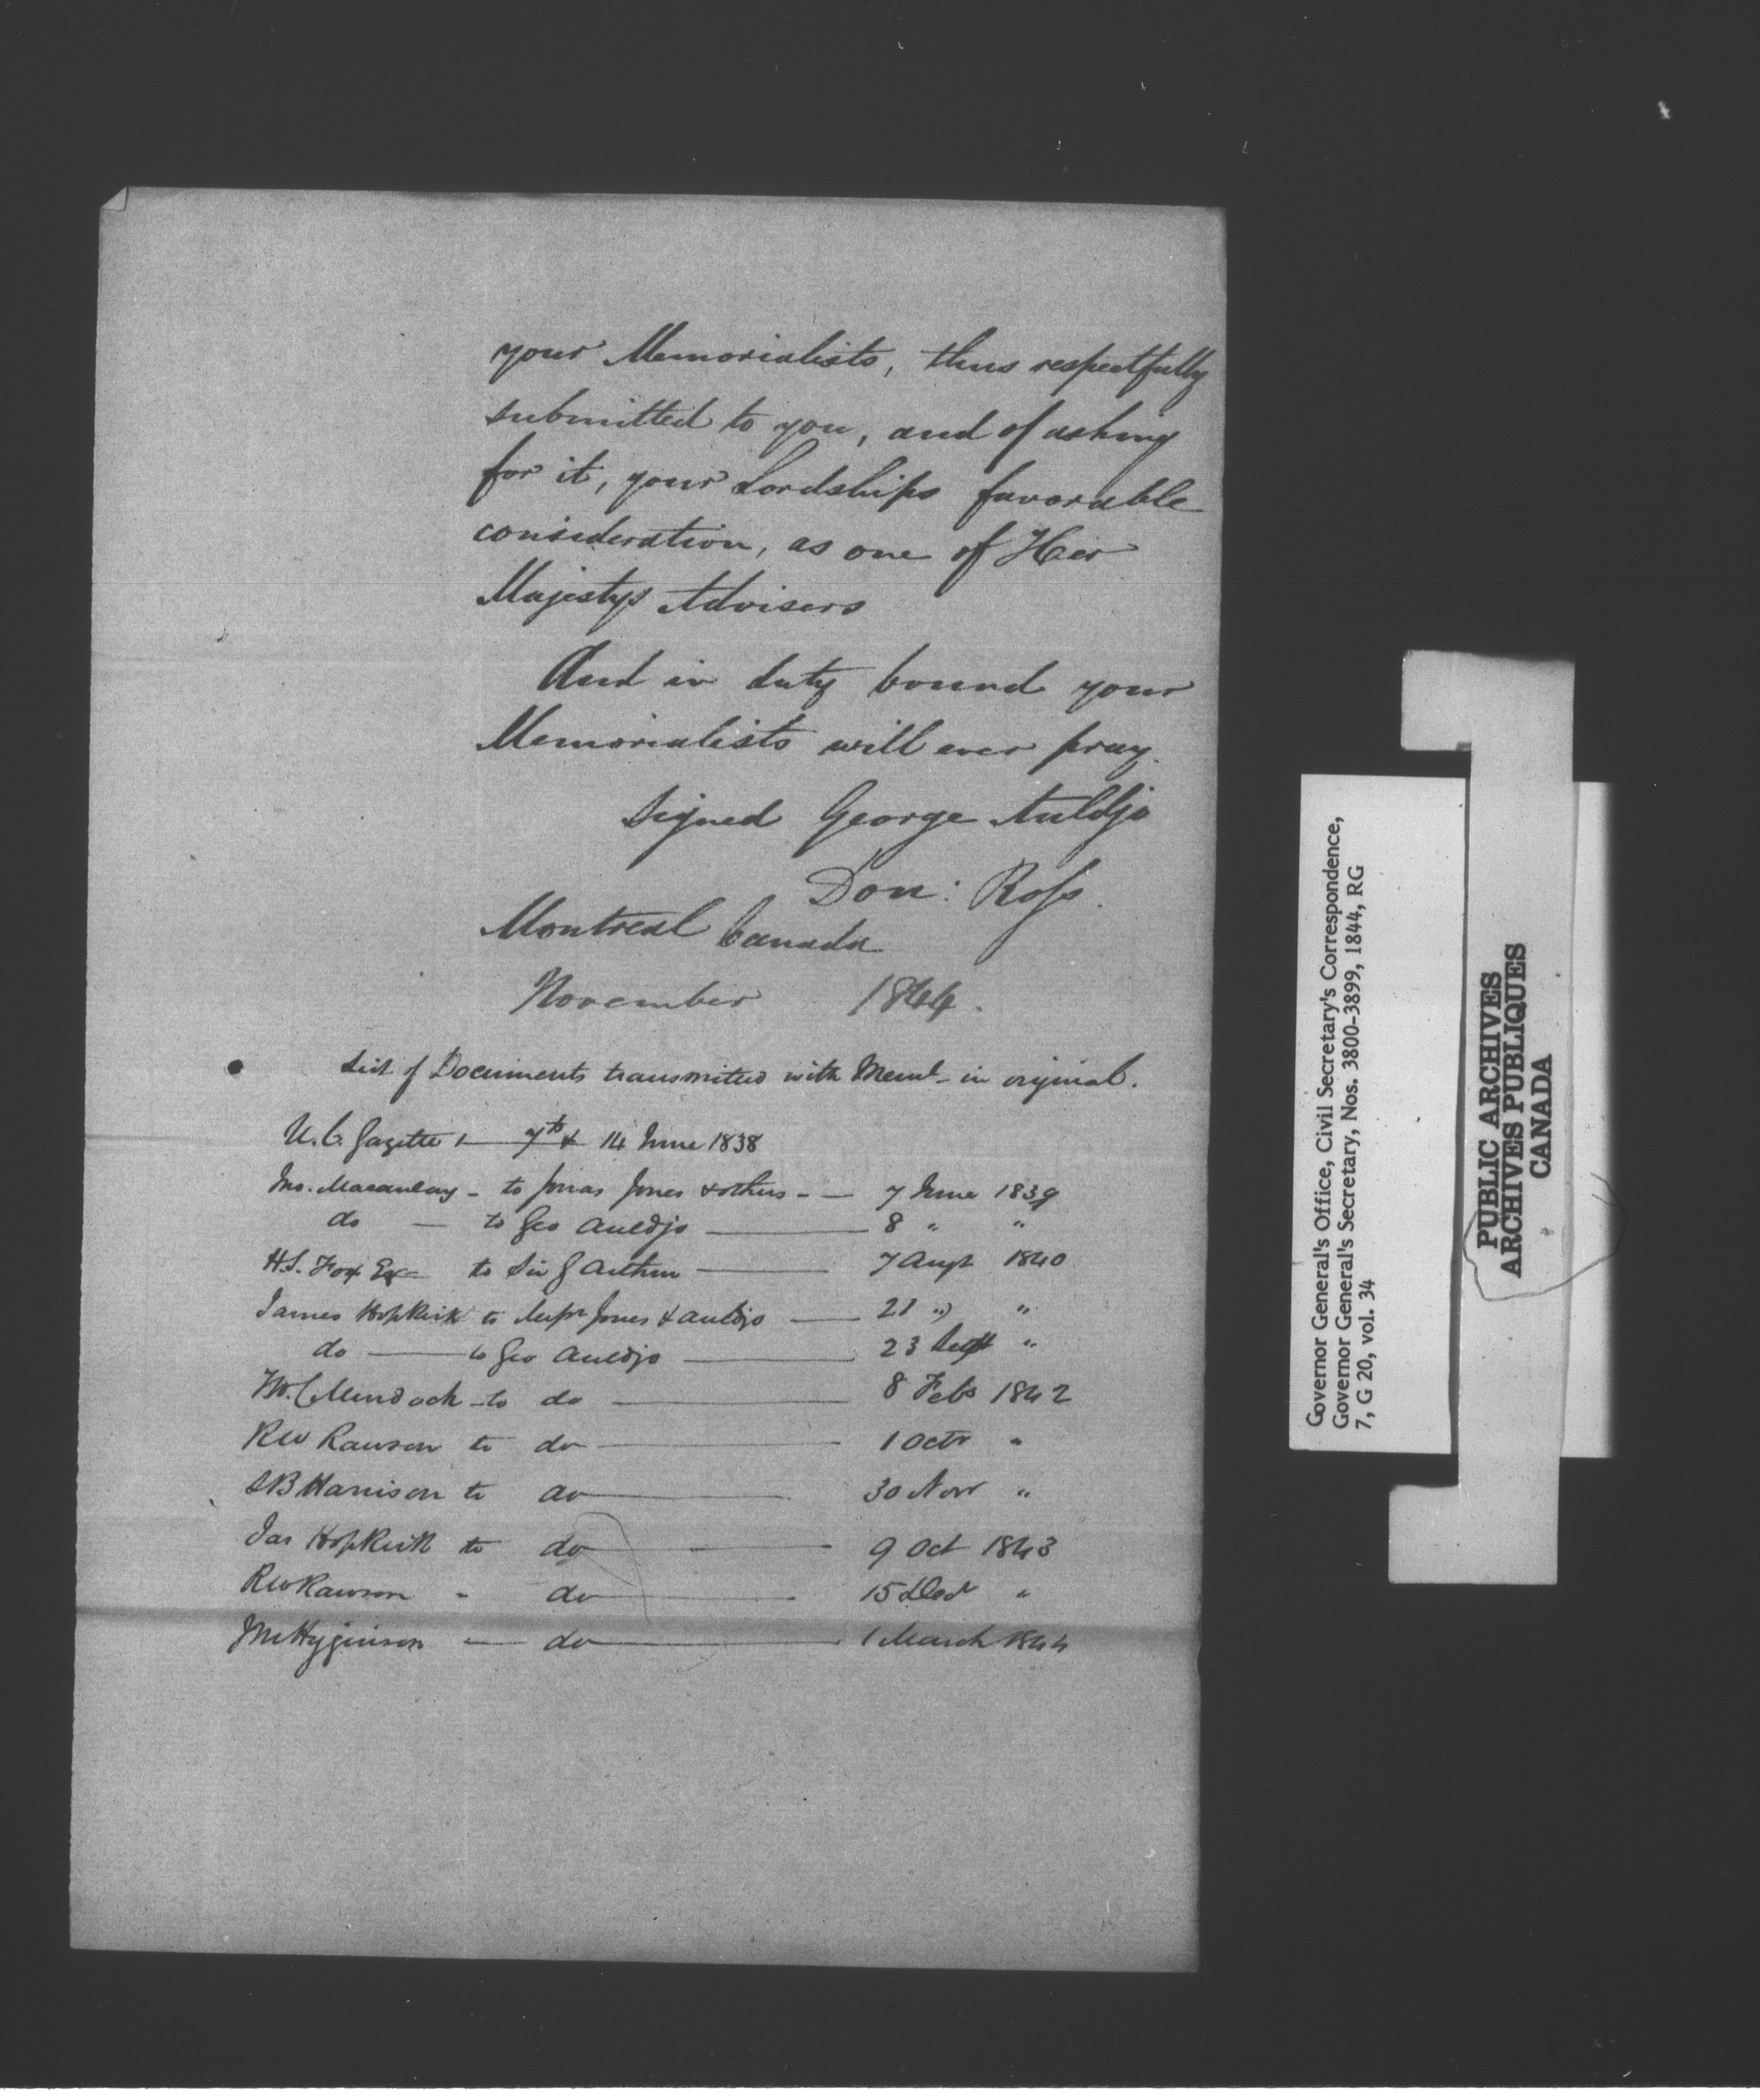 your Memorialists, thus respectfully
submitted to you, and of asking
for it, your Lordships favorable
consideration, as one of Her
Majestys Advisers
And in duty bound your
Memorialists will ever pray.
Signed George Auldjo
Don: Ross.
Montreal Canada
November 1844.
List of Documents transmitted with Meml in original.
U.C. Gazette 7th & 14 June 1838
Jno. Macaulay - to Jonas Jones & others - 7 June 1839
do - to Geo Auldjo 8 " "
H.S. Fox Esq to Sir G Arthur 7 Augt 1840
James Hopkirk to Messrs Jones & Auldjo 21 " "
do to Geo Auldjo 23 Sept "
T.W.C. Murdoch - to do 8 Feb 1842
RW Rawson to do 1 Octr "
SB Harrison to do 30 Novr "
Jas Hopkirk to do 9 Oct 1843
RW Rawson - do 15 Decr "
JM Higginson - do 1 March 1844
Governor General's Office, Civil Secretary's Correspondence,
Governor General's Secretary, Nos. 3800-3899, 1844, RG
7, G 20, vol. 34
PUBLIC ARCHIVES
ARCHIVES PUBLIQUES
CANADA